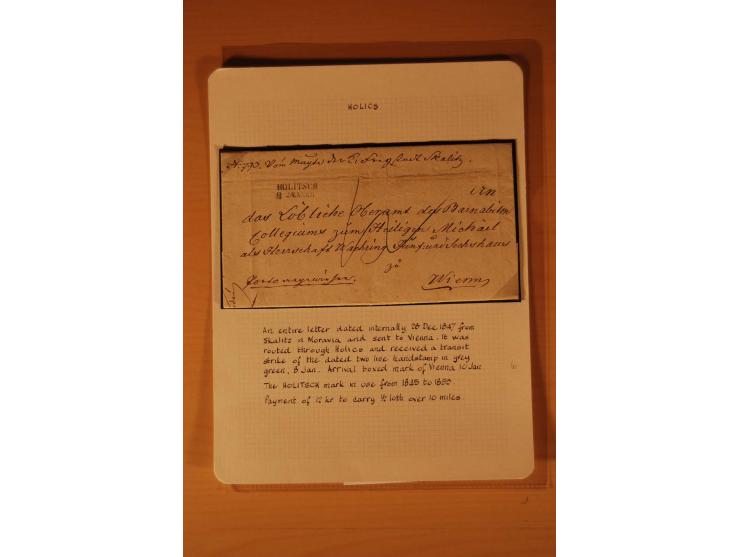 HOLICS
Vom
Skalitz.
HOLITSCH
8 JÄNNER
An
das Löbliche Oberamt des Barnabiten
Collegiums zum Heiligen Michael
als Herrschaft Währing Fünf und Sechshaus
zu
Wienn
An entire letter dated internally 28 Dec 1847 from
Skalitz in Moravia and sent to Vienna. It was
routed through Holics and received a transit
strike of the dated two line handstamp in grey
green, 8 Jan. Arrival boxed mark of Vienna 10 Jan.
The HOLITSCH mark in use from 1845 to 1850
Payment of 12 kr to carry ½ loth over 10 miles.